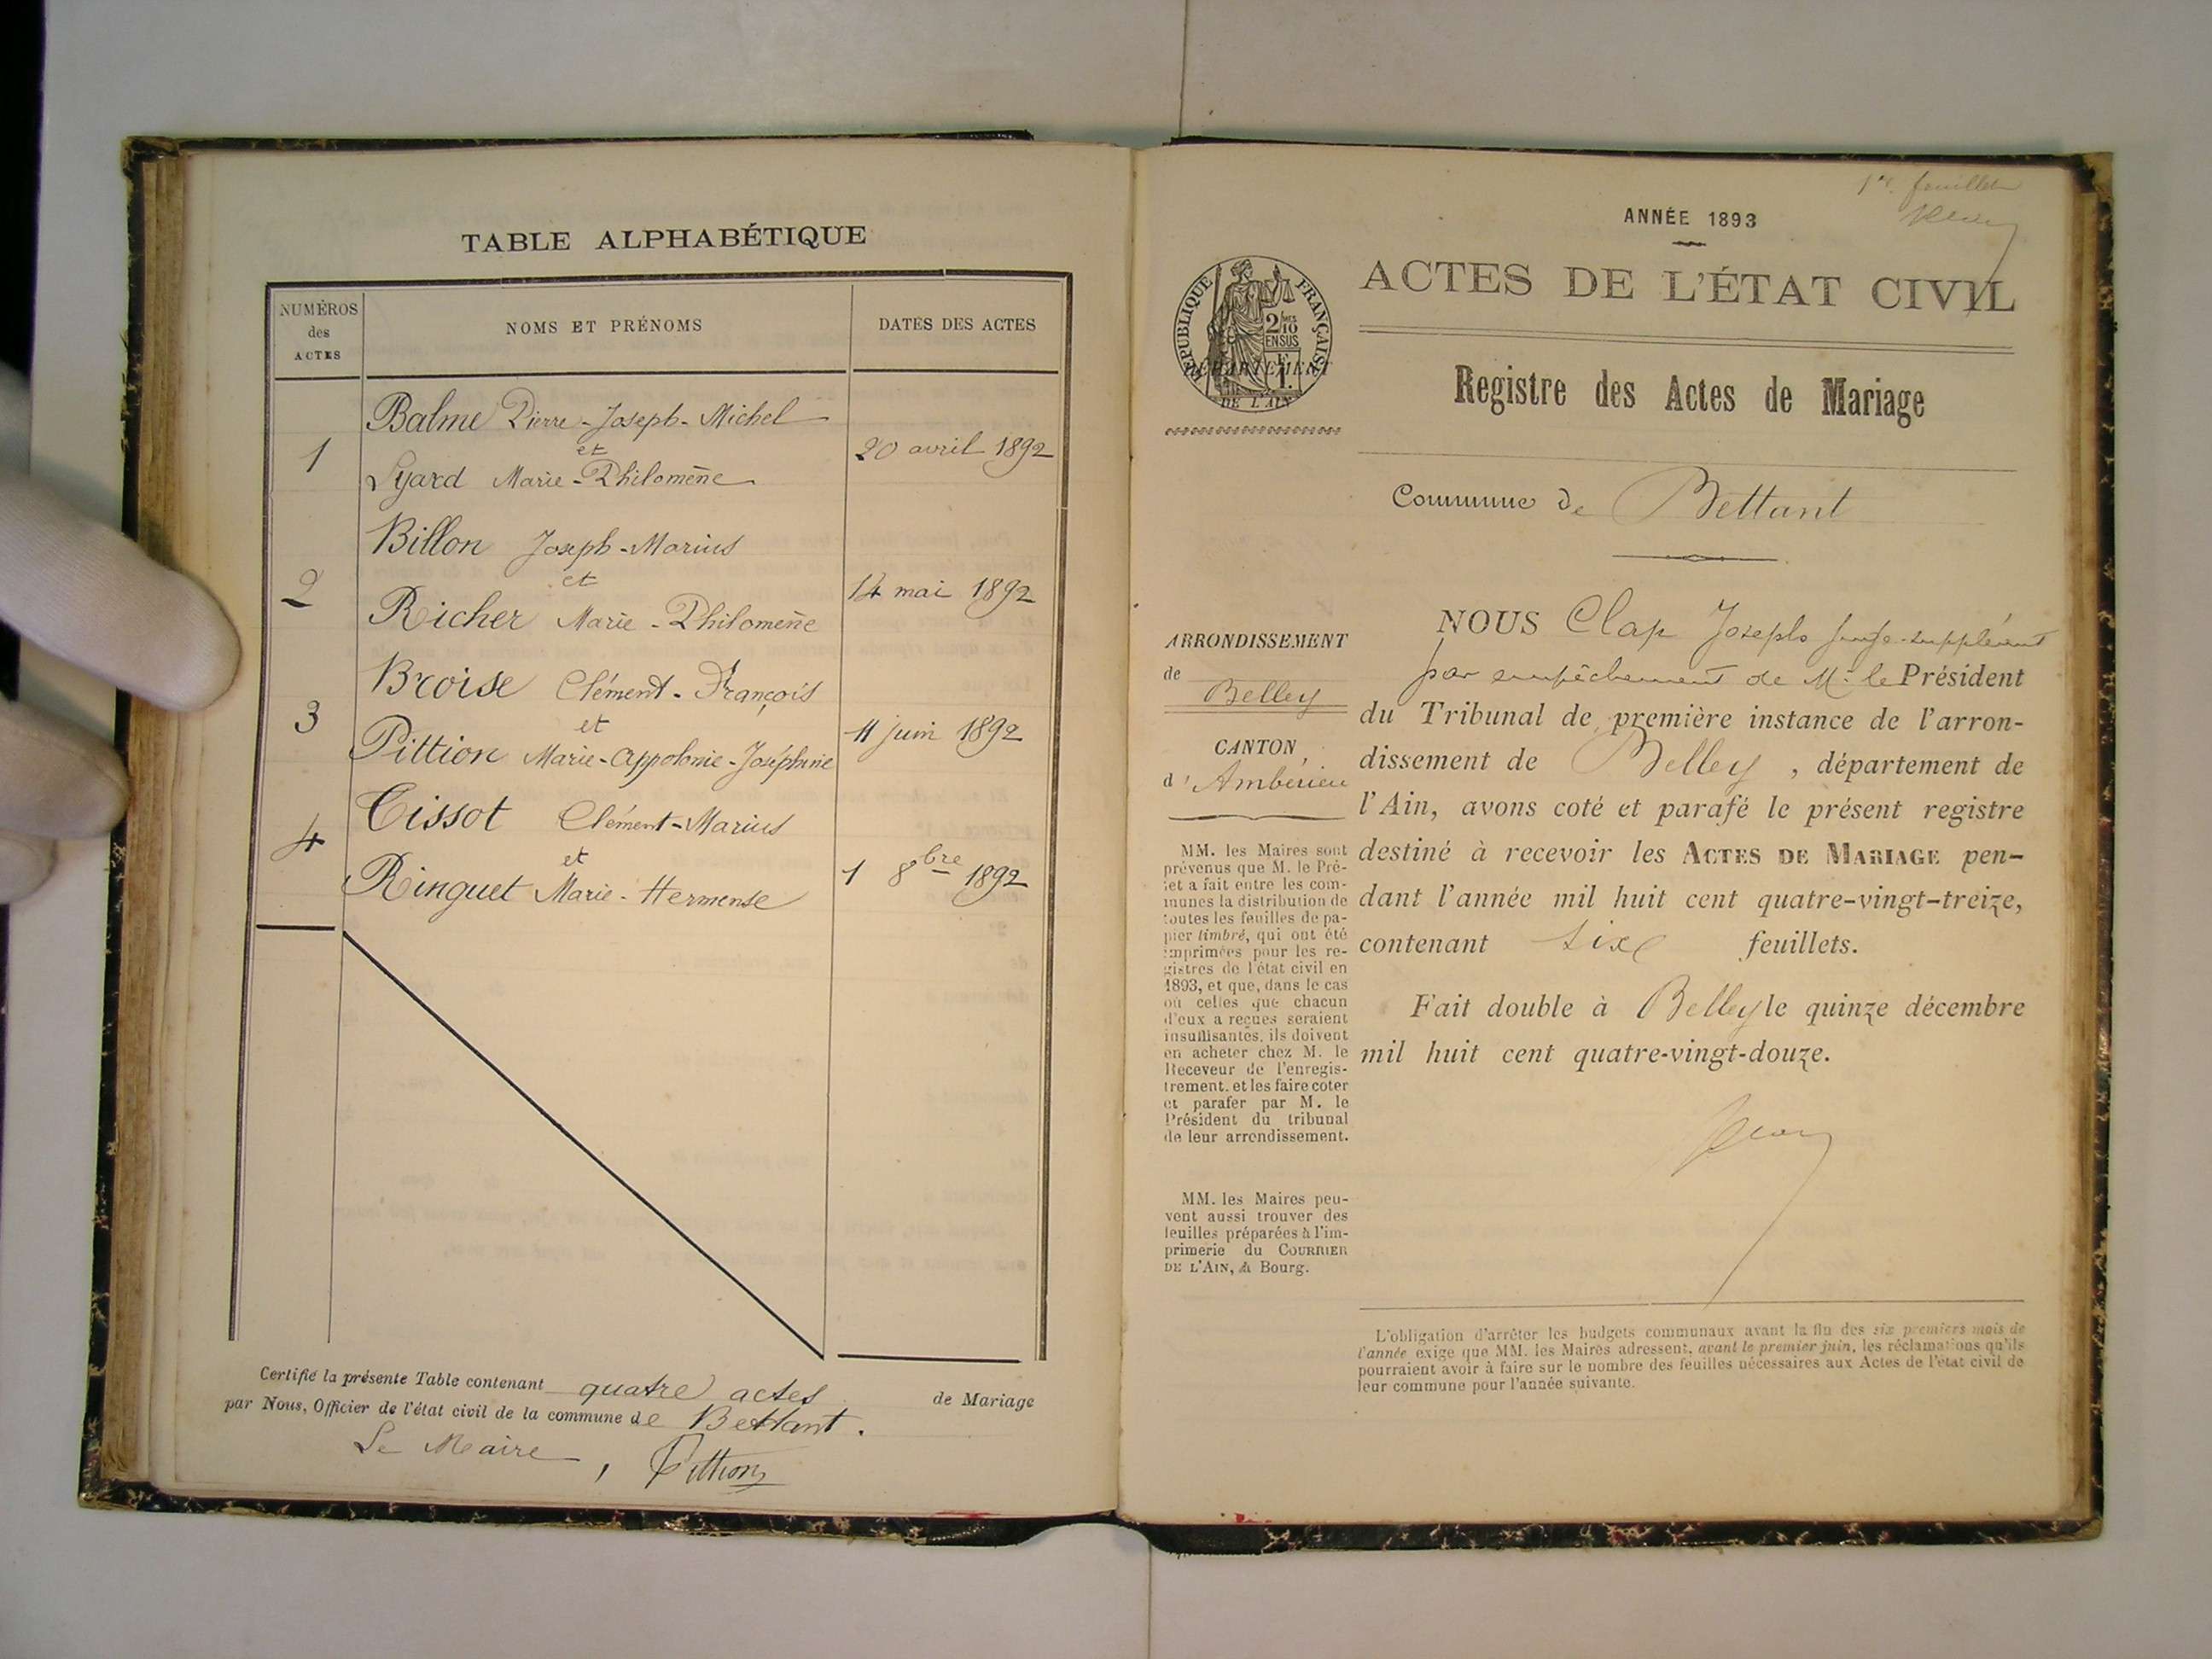 TABLE ALPHABÉTIQUE
NUMÉROS
des
ACTES
NOMS ET PRÉNOMS
DATES DES ACTES
Balme Pierre-Joseph-Michel
et
1
20 avril 1892
Lyard Marie-Philomène
Billon Joseph-Marius
et
2
14 mai 1892
Richer Marie-Philomène
Broise Clément-François
et
3
11 juin 1892
Pittion Marie-Appolonie-Joséphine
Tissot Clément-Marius
et
4
1 8bre 1892
Ringuet Marie-Hermense
Certifié la présente Table contenant quatre actes de Mariage
par Nous, Officier de l'état civil de la commune de Bettant.
Le Maire, Pittion
1er feuillet
ANNÉE 1893
ACTES DE L'ÉTAT CIVIL
RÉPUBLIQUE FRANÇAISE
2/10
EN SUS
DÉPARTEMENT
DE L'AIN
Registre des Actes de Mariage
Commune de Bettant
ARRONDISSEMENT
de
Belley
CANTON
d'Ambérieu
MM. les Maires sont
prévenus que M. le Pré-
fet a fait entre les com-
munes la distribution de
toutes les feuilles de pa-
pier timbré, qui ont été
imprimées pour les re-
gistres de l'état civil en
1893, et que, dans le cas
où celles que chacun
d'eux a reçues seraient
insuffisantes, ils doivent
en acheter chez M. le
Receveur de l'enregis-
trement, et les faire coter
et parafer par M. le
Président du tribunal
de leur arrondissement.
MM. les Maires peu-
vent aussi trouver des
feuilles préparées à l'im-
primerie du COURRIER
DE L'AIN, à Bourg.
NOUS Clap Joseph Juge-suppléant
par empêchement de Mr le Président
du Tribunal de première instance de l'arron-
dissement de Belley, département de
l'Ain, avons coté et parafé le présent registre
destiné à recevoir les ACTES DE MARIAGE pen-
dant l'année mil huit cent quatre-vingt-treize,
contenant six feuillets.
Fait double à Belley le quinze décembre
mil huit cent quatre-vingt-douze.
L'obligation d'arrêter les budgets communaux avant la fin des six premiers mois de
l'année exige que MM. les Maires adressent, avant le premier juin, les réclamations qu'ils
pourraient avoir à faire sur le nombre des feuilles nécessaires aux Actes de l'état civil de
leur commune pour l'année suivante.